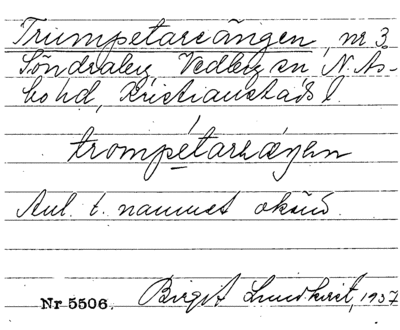 Trumpetareängen, nr 3
Söndraby, Vedby sn N. Ås-
bo hd, Kristianstads l.
trompétarеæŋen
Anl. t. namnet okänd.
Nr 5506. Birgit Lundkvist, 1937